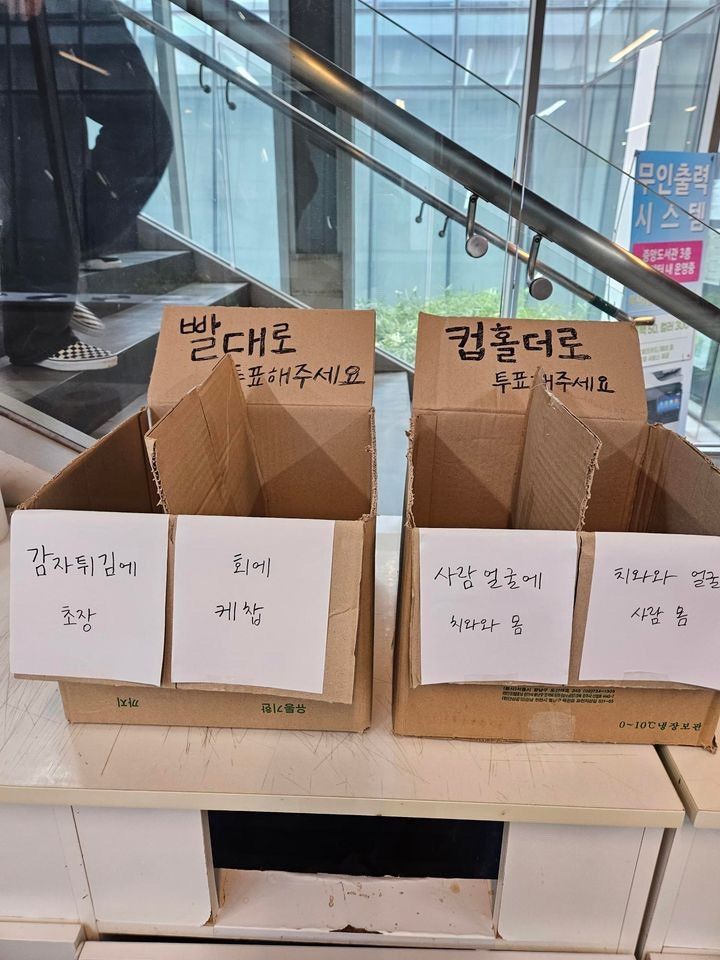 무인출력
시스템
중앙도서관 3층
내 운영중
빨대로
투표해주세요
컵홀더로
투표해주세요
감자튀김에
초장
회에
케찹
사람 얼굴에
치와와 몸
치와와 얼굴
사람 몸
까지
유통기한
0~10℃ 냉장보관